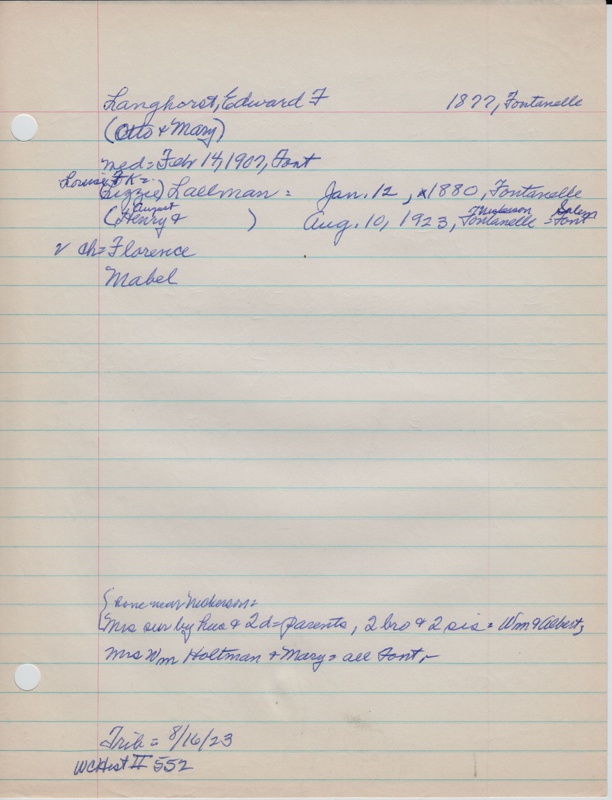 Langhorst, Edward F 1877, Fontanelle
(Otto & Mary)
med = Feb 14, 1907, Font
Louise K =
(Lizzie) Lallman = Jan. 12, 1880, Fontanelle
August Nickerson Salem
(Henry & ) Aug. 10, 1923, Fontanelle = Font
v ch = Florence
Mabel
{ near Nickerson =
Mrs sur by hus & 2d = parents, 2 bro & 2 sis = Wm & Albert,
Mrs Wm Holtman & Mary = all Font,
Trib = 8/16/23
WCHist II 552